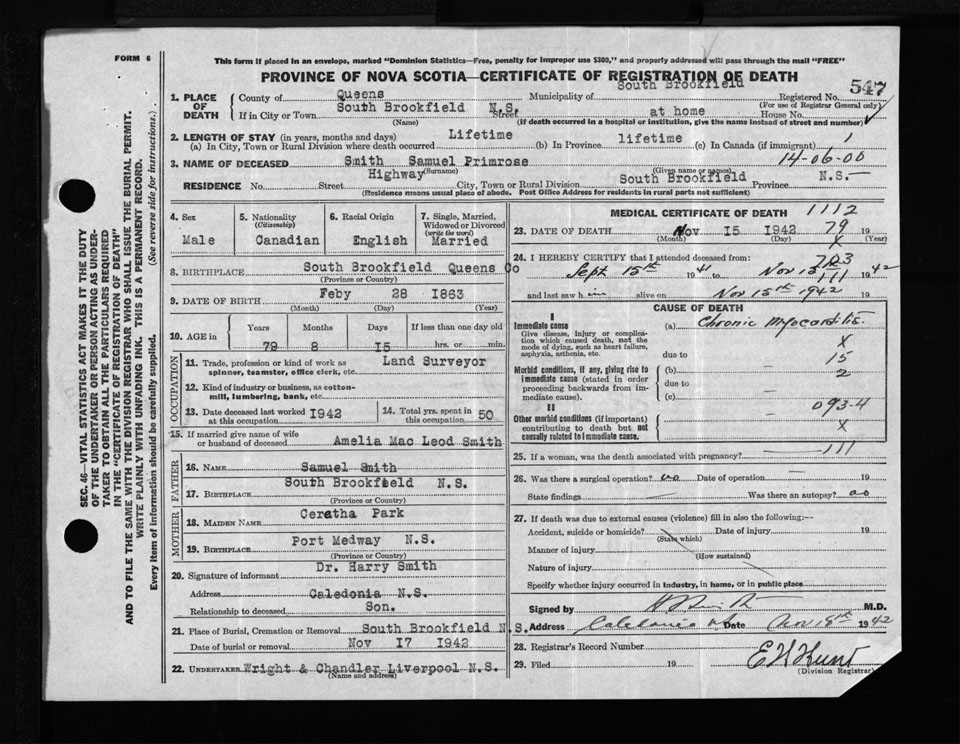 FORM 6
This form if placed in an envelope, marked "Dominion Statistics—Free, penalty for improper use $300," and properly addressed will pass through the mail "FREE"
PROVINCE OF NOVA SCOTIA—CERTIFICATE OF REGISTRATION OF DEATH
547
1. PLACE OF DEATH
County of Queens Municipality of South Brookfield Registered No.
(For use of Registrar General only)
If in City or Town South Brookfield N.S. Street at home House No.
(Name) (If death occurred in a hospital or institution, give the name instead of street and number)
2. LENGTH OF STAY (in years, months and days)
(a) In City, Town or Rural Division where death occurred Lifetime (b) In Province lifetime (c) In Canada (if immigrant) 1
14-06-00
3. NAME OF DECEASED Smith Samuel Primrose
(Surname) (Given name or names)
RESIDENCE No. Street Highway City, Town or Rural Division South Brookfield Province N.S.
(Residence means usual place of abode. Post Office Address for residents in rural parts not sufficient)
4. Sex
Male
5. Nationality
(Citizenship)
Canadian
6. Racial Origin
English
7. Single, Married, Widowed or Divorced
(write the word)
Married
8. BIRTHPLACE South Brookfield Queens Co
(Province or Country)
9. DATE OF BIRTH Feby 28 1863
(Month) (Day) (Year)
10. AGE in
Years Months Days If less than one day old
79 8 15 hrs. or min.
OCCUPATION
11. Trade, profession or kind of work as spinner, teamster, office clerk, etc. Land Surveyor
12. Kind of industry or business, as cotton-mill, lumbering, bank, etc.
13. Date deceased last worked at this occupation 1942
14. Total yrs. spent in this occupation 50
15. If married give name of wife or husband of deceased Amelia Mac Leod Smith
FATHER
16. NAME Samuel Smith
17. BIRTHPLACE South Brookfield N.S.
(Province or Country)
MOTHER
18. MAIDEN NAME Ceratha Park
19. BIRTHPLACE Port Medway N.S.
(Province or Country)
20. Signature of informant Dr. Harry Smith
Address Caledonia N.S.
Relationship to deceased Son.
21. Place of Burial, Cremation or Removal South Brookfield N.S.
Date of burial or removal Nov 17 1942
22. UNDERTAKER Wright & Chandler Liverpool N.S.
(Name and address)
MEDICAL CERTIFICATE OF DEATH 1112
23. DATE OF DEATH Nov 15 1942 79 19
(Month) (Day) (Year)
x
24. I HEREBY CERTIFY that I attended deceased from:
Sept 15th 1941 to Nov 15 1942
111
and last saw him alive on Nov 15th 1942 19
CAUSE OF DEATH
I
Immediate cause
Give disease, injury or complication which caused death, not the mode of dying, such as heart failure, asphyxia, asthenia, etc.
(a) Chronic Myocarditis.
x
due to 15
Morbid conditions, if any, giving rise to immediate cause (stated in order proceeding backwards from immediate cause).
(b) 2
due to
(c)
II
093-4
Other morbid conditions (if important) contributing to death but not causally related to immediate cause.
x
25. If a woman, was the death associated with pregnancy? 111
26. Was there a surgical operation? no Date of operation 19
State findings Was there an autopsy? no
27. If death was due to external causes (violence) fill in also the following:—
Accident, suicide or homicide? Date of injury 19
(State which)
Manner of injury
(How sustained)
Nature of injury
Specify whether injury occurred in industry, in home, or in public place
Signed by H. Smith M.D.
Address Caledonia NS Date Nov 18th 1942
28. Registrar's Record Number
29. Filed 19 E W Hunt
(Division Registrar)
SEC. 46—VITAL STATISTICS ACT MAKES IT THE DUTY
OF THE UNDERTAKER OR PERSON ACTING AS UNDER-
TAKER TO OBTAIN ALL THE PARTICULARS REQUIRED
IN THE "CERTIFICATE OF REGISTRATION OF DEATH"
AND TO FILE THE SAME WITH THE DIVISION REGISTRAR WHO SHALL ISSUE THE BURIAL PERMIT.
WRITE PLAINLY WITH UNFADING INK. THIS IS A PERMANENT RECORD.
Every item of information should be carefully supplied. (See reverse side for instructions.)